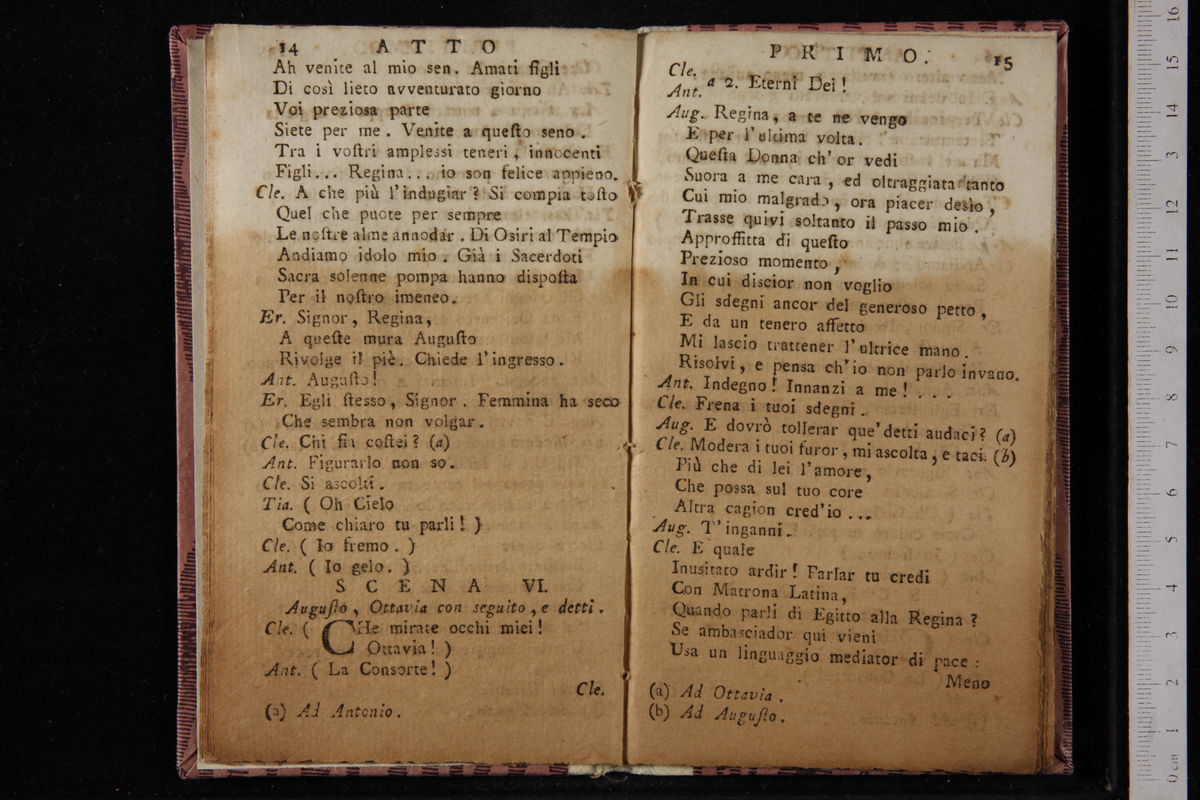 14 ATTO
Ah venite al mio sen. Amati figli
Di così lieto avventurato giorno
Voi preziosa parte
Siete per me. Venite a queſto seno.
Tra i voſtri amplessi teneri, innocenti
Figli... Regina... io son felice appieno.
Cle. A che più l'indugiar? Si compia toſto
Quel che puote per sempre
Le noſtre alme annodar. Di Osiri al Tempio
Andiamo idolo mio. Già i Sacerdoti
Sacra solenne pompa hanno dispoſta
Per il noſtro imeneo.
Er. Signor, Regina,
A queſte mura Auguſto
Rivolge il piè. Chiede l'ingresso.
Ant. Auguſto!
Er. Egli ſtesso, Signor. Femmina ha seco
Che sembra non volgar.
Cle. Chi fia coſtei? (a)
Ant. Figurarlo non so.
Cle. Si ascolti.
Tia. ( Oh Cielo
Come chiaro tu parli! )
Cle. ( Io fremo. )
Ant. ( Io gelo. )
SCENA VI.
Auguſto, Ottavia con seguito, e detti.
Cle. ( CHe mirate occhi miei!
Ottavia! )
Ant. ( La Consorte! )
Cle.
(a) Ad Antonio.
PRIMO. 15
Cle.
Ant. a 2. Eterni Dei!
Aug. Regina, a te ne vengo
E per l'ultima volta.
Queſta Donna ch'or vedi
Suora a me cara, ed oltraggiata tanto
Cui mio malgrado, ora piacer desìo,
Trasse quivi soltanto il passo mio.
Approffitta di queſto
Prezioso momento,
In cui discior non voglio
Gli sdegni ancor del generoso petto,
E da un tenero affetto
Mi lascio trattener l'ultrice mano.
Risolvi, e pensa ch'io non parlo invano.
Ant. Indegno! Innanzi a me!...
Cle. Frena i tuoi sdegni.
Aug. E dovrò tollerar que' detti audaci? (a)
Cle. Modera i tuoi furor, mi ascolta, e taci. (b)
Più che di lei l'amore,
Che possa sul tuo core
Altra cagion cred'io...
Aug. T'inganni.
Cle. E quale
Inusitato ardir! Farlar tu credi
Con Matrona Latina,
Quando parli di Egitto alla Regina?
Se ambasciador qui vieni
Usa un linguaggio mediator di pace:
Meno
(a) Ad Ottavia.
(b) Ad Auguſto.
0 cm 1 2 3 4 5 6 7 8 9 10 11 12 13 14 15 16